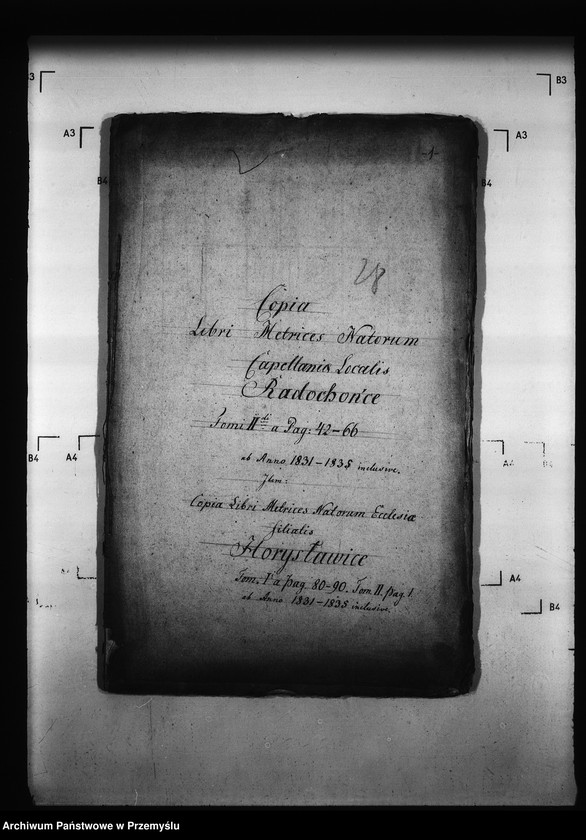 B3
B3
A3
A3
-1-
B4
B4
28
Copia
Libri Metrices Natorum
Capellania Localis
Radochońce
Tomi II di a Pag: 42-66
ab Anno 1831-1835 inclusive.
Item:
Copia Libri Metrices Natorum Ecclesia
filialis
Horysławice
Tom. I a pag. 80-90. Tom II. pag. 1.
ab Anno 1831-1835 inclusive.
B4
A4
A4
B4
A4
B4
Archiwum Państwowe w Przemyślu